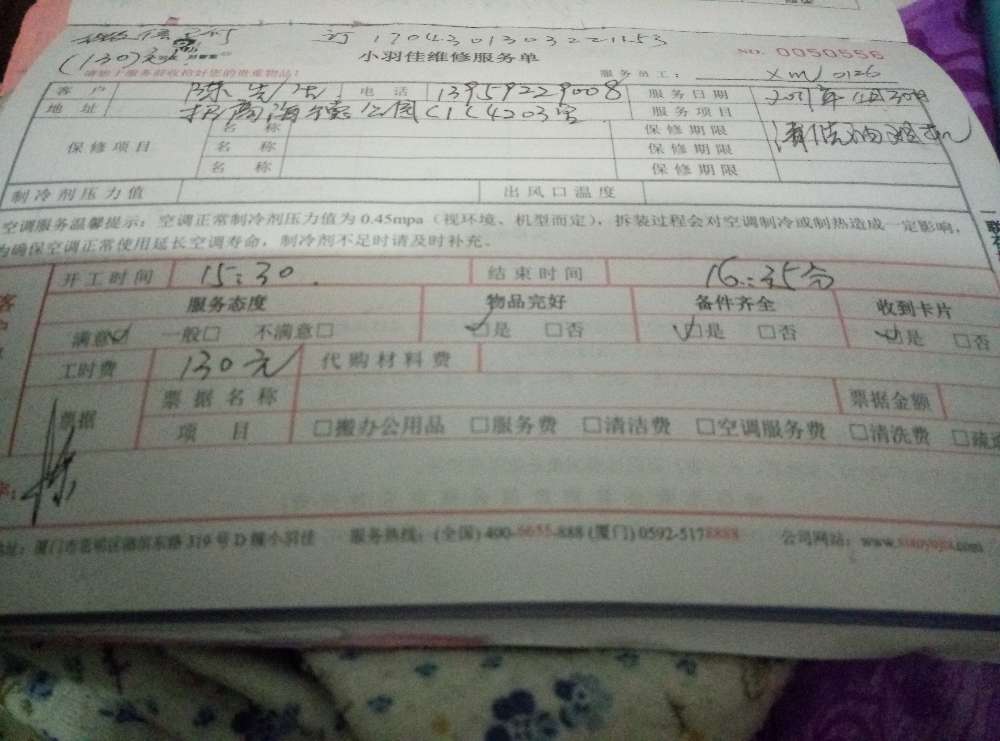 订 1704301303221153
(130)元
小羽佳维修服务单
NO. 0050556
请您于服务前收拾好您的贵重物品!
服务员工: XM 0126
客户 陈先生 电话 13959229008 服务日期
地址 招商海德公园C1C4203室 服务项目 清洗油烟机
保修项目 名称 保修期限
名称 保修期限
名称 保修期限
制冷剂压力值 出风口温度
空调服务温馨提示:空调正常制冷剂压力值为0.45mpa(视环境、机型而定),拆装过程会对空调制冷或制热造成一定影响,
为确保空调正常使用延长空调寿命,制冷剂不足时请及时补充。
开工时间 15:30 结束时间 16:35分
服务态度 物品完好 备件齐全 收到卡片
满意☑ 一般□ 不满意□ ☑是 □否 ☑是 □否 ☑是 □否
工时费 130元 代购材料费
票据 票据名称 票据金额
项目 □搬办公用品 □服务费 □清洁费 □空调服务费 □清洗费 □疏
陈
319号D幢小羽佳 服务热线:(全国)400-6655-888 (厦门)0592-5178888 公司网站:www.xiaoyujia.com